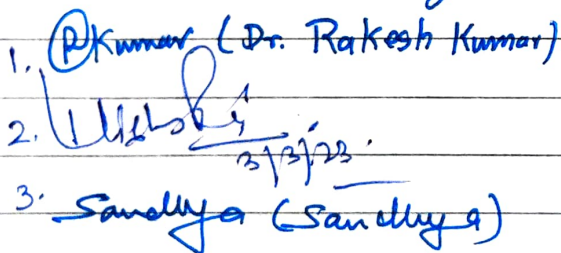 1. RKumar (Dr. Rakesh Kumar)
2.
3/3/23.
3. Sandhya (Sandhya)